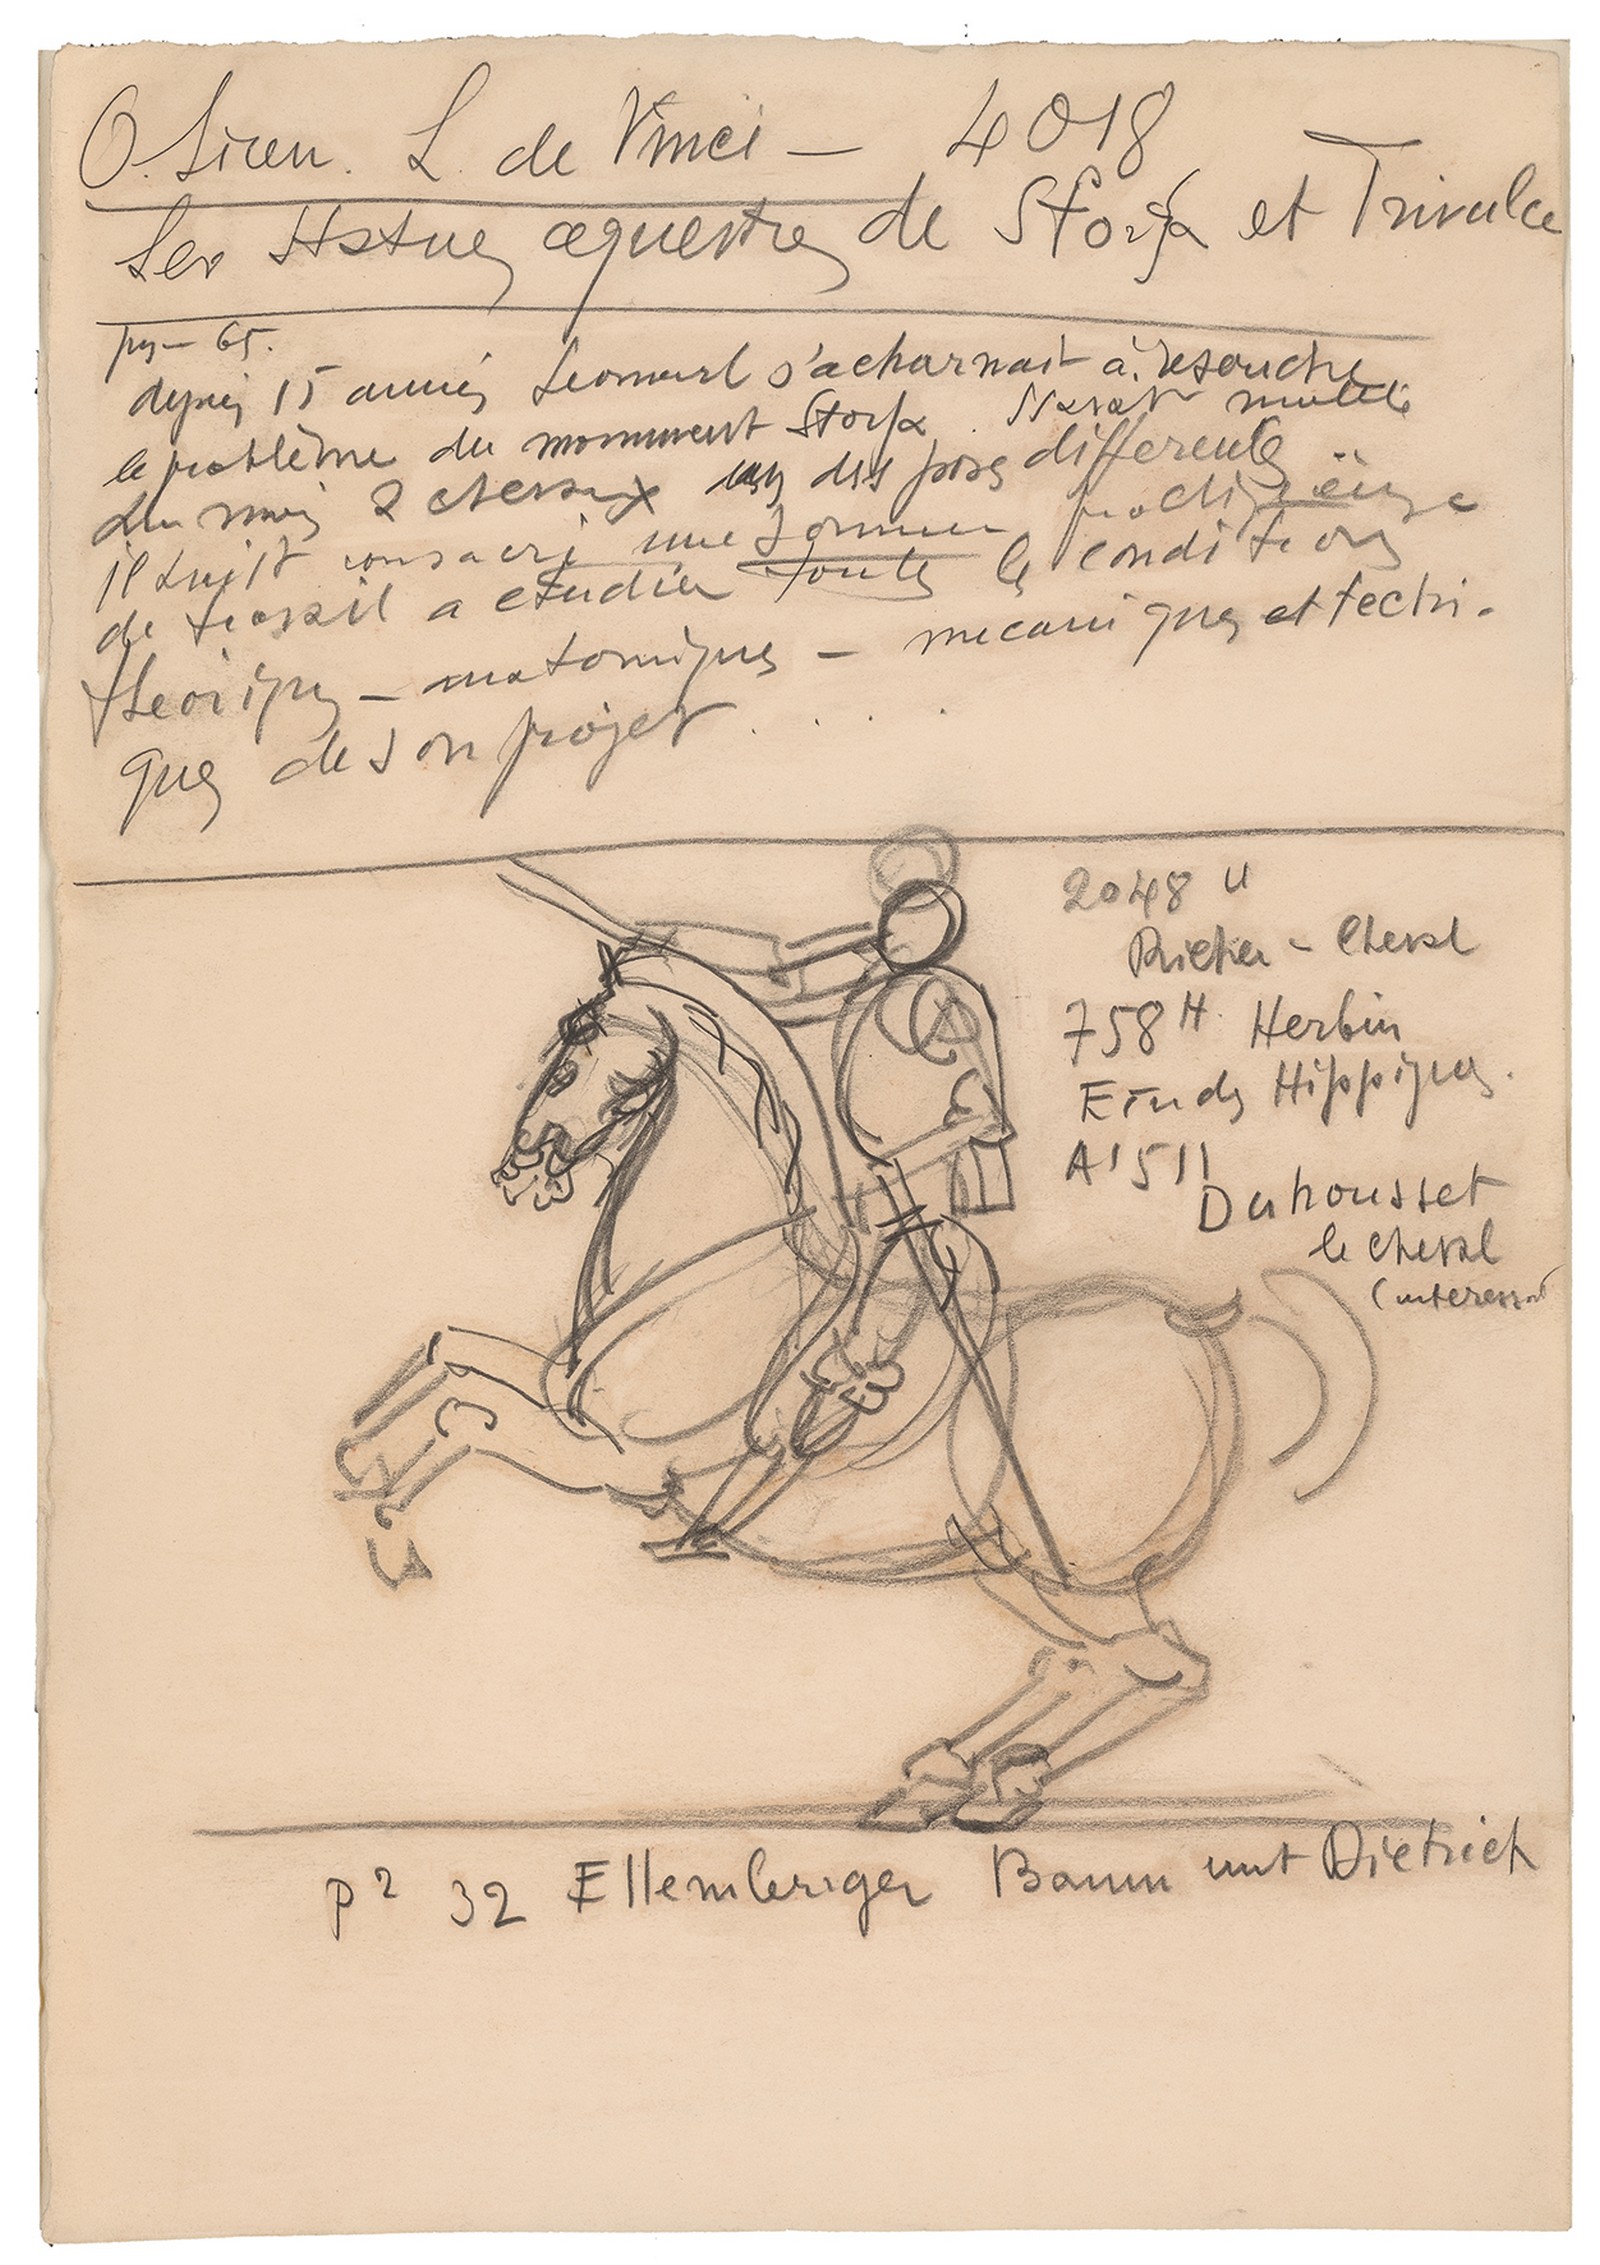 O. Siren. L. de Vinci — 4018
Les Statues equestres de Sforza et Trivulce
pag— 65.
depuis 15 années Leonard s'acharnait à resoudre
le problème du monument Sforza. Il avait modelé
du moins 2 chevaux en des poses differents
il avait consacré une somme prodigieuse
de travail a etudier toutes les conditions
theoriques — anatomiques — mecaniques et techni-
ques de son projet . . . .
2048 U
Richer - Cheval
758 H. Herbin
Etudes Hippiques.
A 1511
Duhousset
le cheval
(interessant
p² 32 Ellemberger Baum unt Dietrich